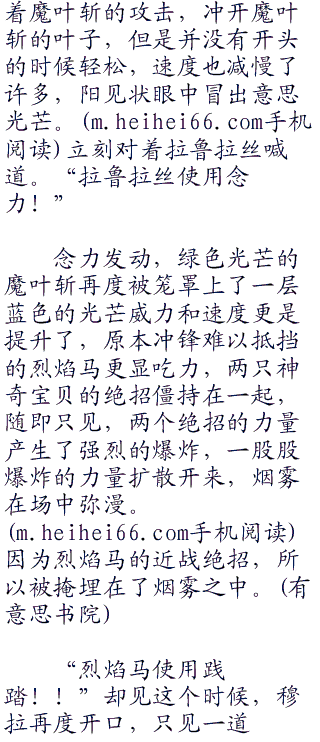 着魔叶斩的攻击，冲开魔叶
斩的叶子，但是并没有开头
的时候轻松，速度也减慢了
许多，阳见状眼中冒出意思
光芒。(m.heihei66.com手机
阅读)立刻对着拉鲁拉丝喊
道。“拉鲁拉丝使用念
力！”
念力发动，绿色光芒的
魔叶斩再度被笼罩上了一层
蓝色的光芒威力和速度更是
提升了，原本冲锋难以抵挡
的烈焰马更显吃力，两只神
奇宝贝的绝招僵持在一起，
随即只见，两个绝招的力量
产生了强烈的爆炸，一股股
爆炸的力量扩散开来，烟雾
在场中弥漫。
(m.heihei66.com手机阅读)
因为烈焰马的近战绝招，所
以被掩埋在了烟雾之中。(有
意思书院)
“烈焰马使用践
踏！！”却见这个时候，穆
拉再度开口，只见一道